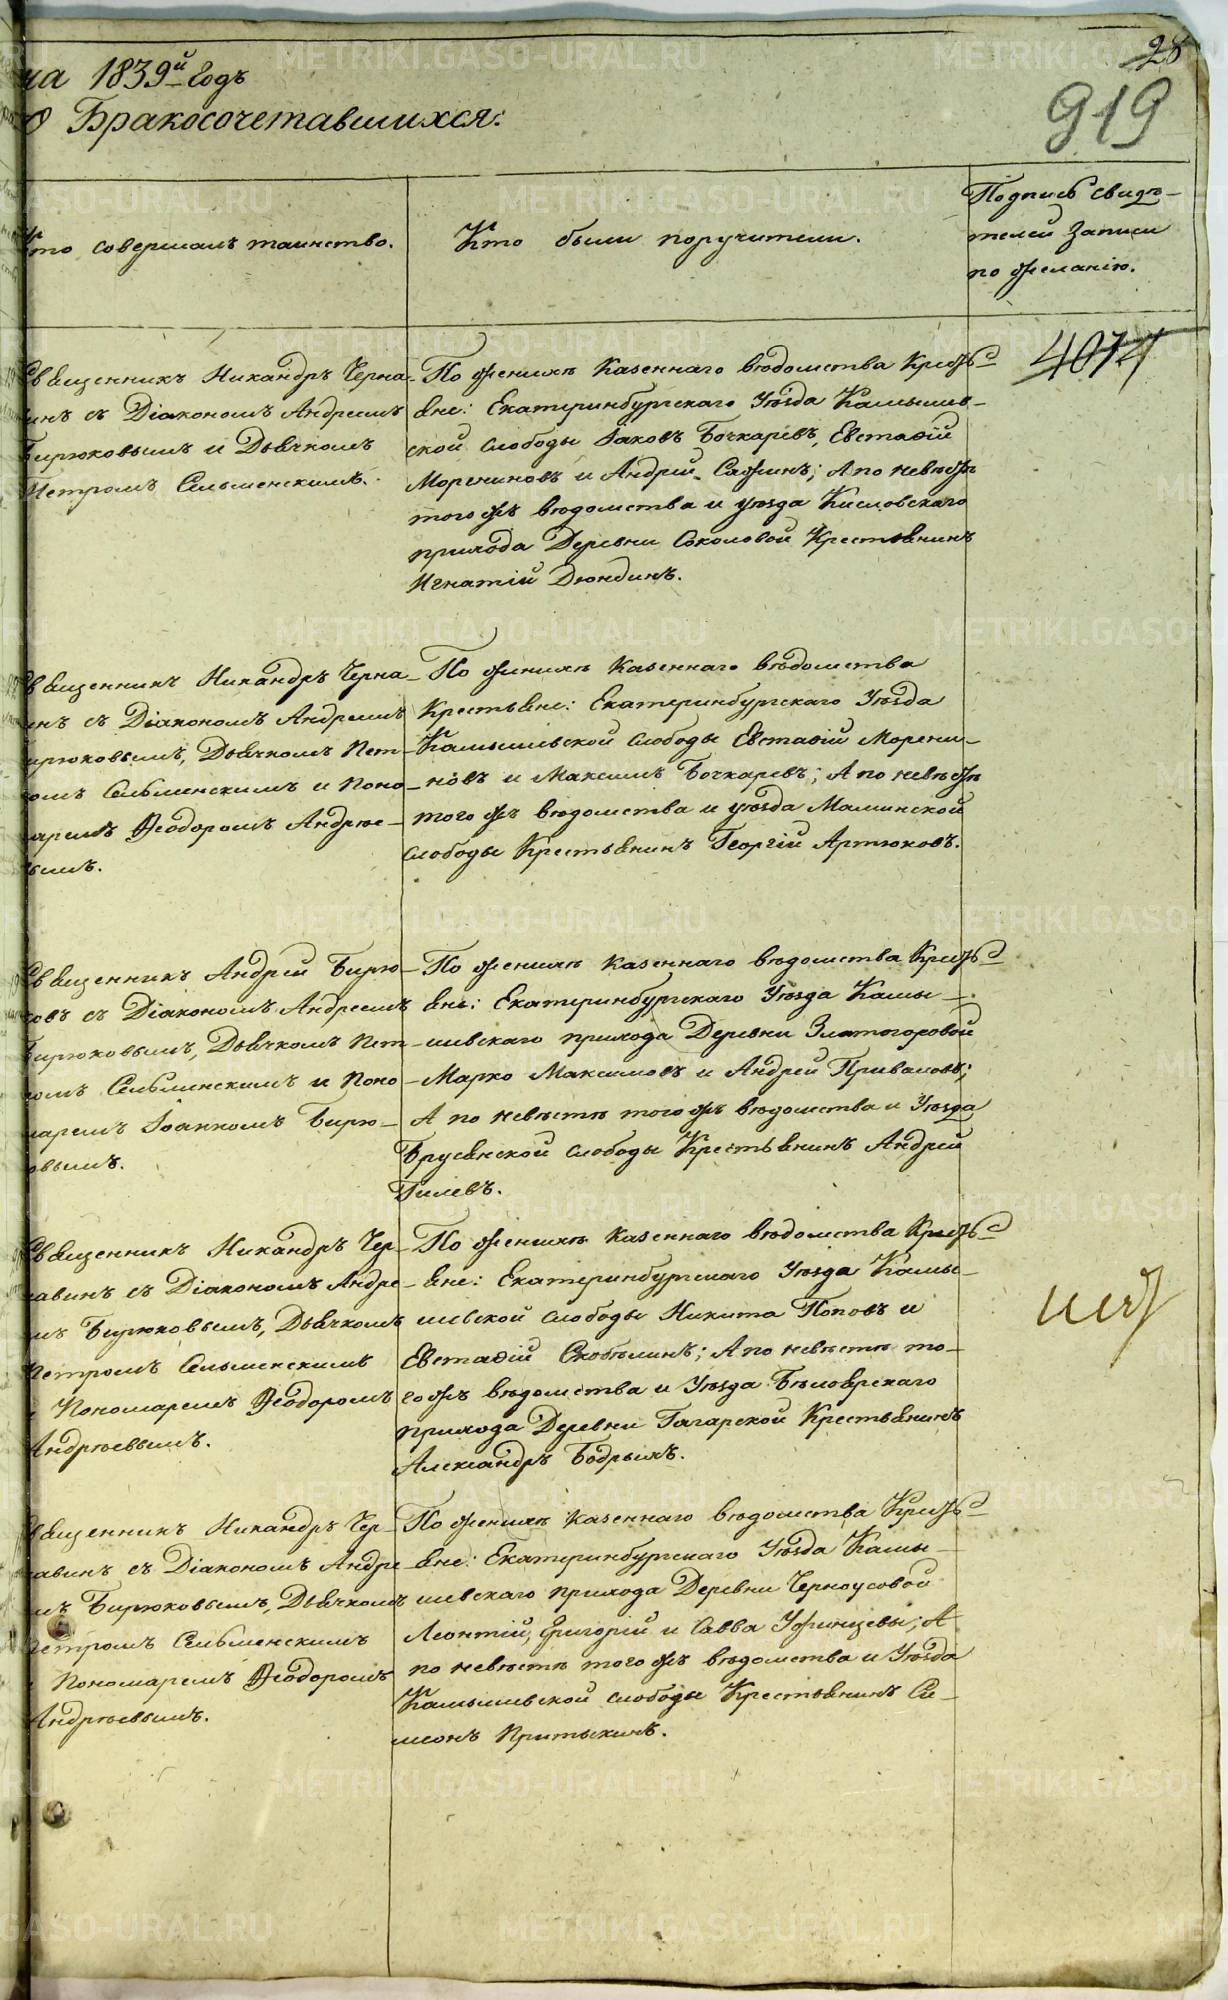 28
919
на 1839й Годъ
О Бракосочетавшихся:
Кто совершалъ таинство.
Кто были поручители.
Подпись свидѣ-
телей записи
по желанію.
4074
Священникъ Никандръ Черна-
инъ съ Діакономъ Андреемъ
Бирюковымъ и Дьячкомъ
Петромъ Сельменскимъ.
По женихѣ Казеннаго вѣдомства Кресть-
яне: Екатеринбургскаго Уѣзда Камышев-
ской слободы Іаковъ Бочкаревъ, Евстафій
Морениновъ и Андрей Сажинъ; А по невѣстѣ
того жъ вѣдомства и уѣзда Кисловскаго
прихода Деревни Соколовой Крестьянинъ
Игнатій Дюндинъ.
Священникъ Никандръ Черна-
инъ съ Діакономъ Андреемъ
ирюковымъ, Дьячкомъ Пет-
ромъ Сельменскимъ и Поно-
маремъ Ѳеодоромъ Андрѣе-
вымъ.
По женихѣ Казеннаго вѣдомства
Крестьяне: Екатеринбургскаго Уѣзда
Камышевской слободы Евстафій Морени-
новъ и Максимъ Бочкаревъ; А по невѣстѣ
того жъ вѣдомства и уѣзда Маминской
слободы Крестьянинъ Георгій Артюховъ.
Священникъ Андрей Бирю-
ковъ съ Діакономъ Андреемъ
Бирюковымъ, Дьячкомъ Пет-
ромъ Сельменскимъ и Поно-
маремъ Іоанномъ Бирю-
ковымъ.
По женихѣ казеннаго вѣдомства Кресть-
яне: Екатеринбургскаго Уѣзда Камы-
шевскаго прихода Деревни Златогоровой
Марко Максимовъ и Андрей Приваловъ;
А по невѣстѣ того жъ вѣдомства и Уѣзда
Брусянской слободы Крестьянинъ Андрей
Гилевъ.
Священникъ Никандръ Чер-
навинъ съ Діакономъ Андре-
мъ Бирюковымъ, Дьячкомъ
Петромъ Сельменскимъ
и Пономаремъ Ѳеодоромъ
Андрѣевымъ.
По женихѣ казеннаго вѣдомства Кресть-
яне: Екатеринбургскаго Уѣзда Камы-
шевской слободы Никита Поповъ и
Евстафій Скобѣлинъ; А по невѣстѣ то-
го жъ вѣдомства и Уѣзда Бѣлоярскаго
прихода Деревни Гагарской Крестьянинъ
Александръ Бодрыхъ.
Священникъ Никандръ Чер-
навинъ съ Діакономъ Андре
мъ Бирюковымъ, Дьячкомъ
Петромъ Сельменскимъ
и Пономаремъ Ѳеодоромъ
Андрѣевымъ.
По женихѣ казеннаго вѣдомства Кресть-
яне: Екатеринбургскаго Уѣзда Камы-
шевскаго прихода Деревни Черноусовой
Леонтій, Григорій и Савва Уфинцевы; А
по невѣстѣ того жъ вѣдомства и Уѣзда
Камышевской слободы Крестьянинъ Си-
меонъ Притыкинъ.
METRIKI.GASO-URAL.RU